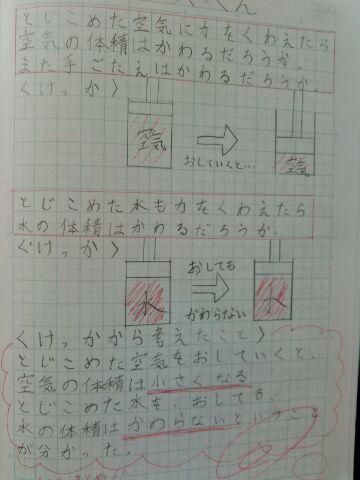 とじこめた空気に力をくわえたら
空気の体積はかわるだろうか。
また手ごたえはかわるだろうか。
〈けっか〉
空気
おしていくと…
空気
とじこめた水も力をくわえたら
水の体積はかわるだろうか。
〈けっか〉
水
おしても
かわらない
水
〈けっかから考えたこと〉
とじこめた空気をおしていくと、
空気の体積は小さくなる
とじこめた水をおしても、
水の体積はかわらないということ
が分かった。